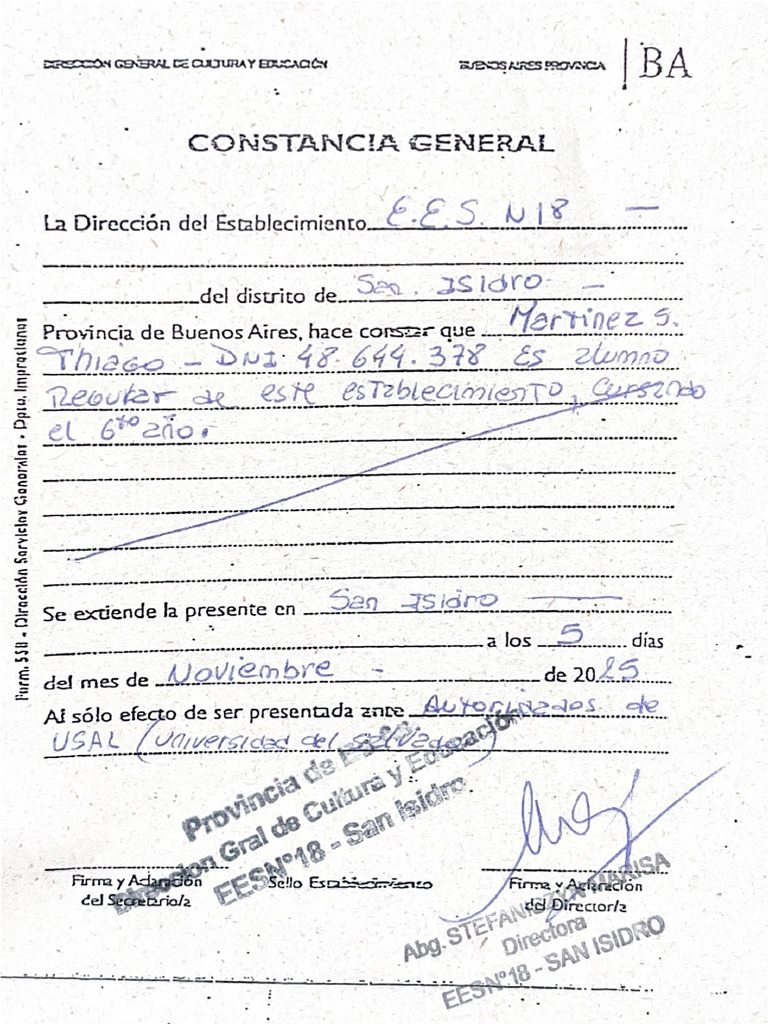 DIRECCIÓN GENERAL DE CULTURA Y EDUCACIÓN
BUENOS AIRES PROVINCIA | BA
CONSTANCIA GENERAL
La Dirección del Establecimiento E.E.S. N 18 —
del distrito de San Isidro —
Provincia de Buenos Aires, hace constar que Martinez S.
Thiago - DNI 48.644.378 Es alumno
Regular de este establecimiento, cursando
el 6to año.
Se extiende la presente en San Isidro —
a los 5 días
del mes de Noviembre - de 2025
Al sólo efecto de ser presentada ante Autoridades de
USAL (Universidad del Salvador)
Provincia de Bs. As.
Direccion Gral de Cultura y Educación
EESN°18 - San Isidro
Firma y Aclaración
del Secretario/a
Sello Establecimiento
Firma y Aclaración
del Director/a
Abg. MARISA
Directora
EESN°18 - SAN ISIDRO
Form. 530 - Dirección Servicios Generales - Dpto. Impresiones